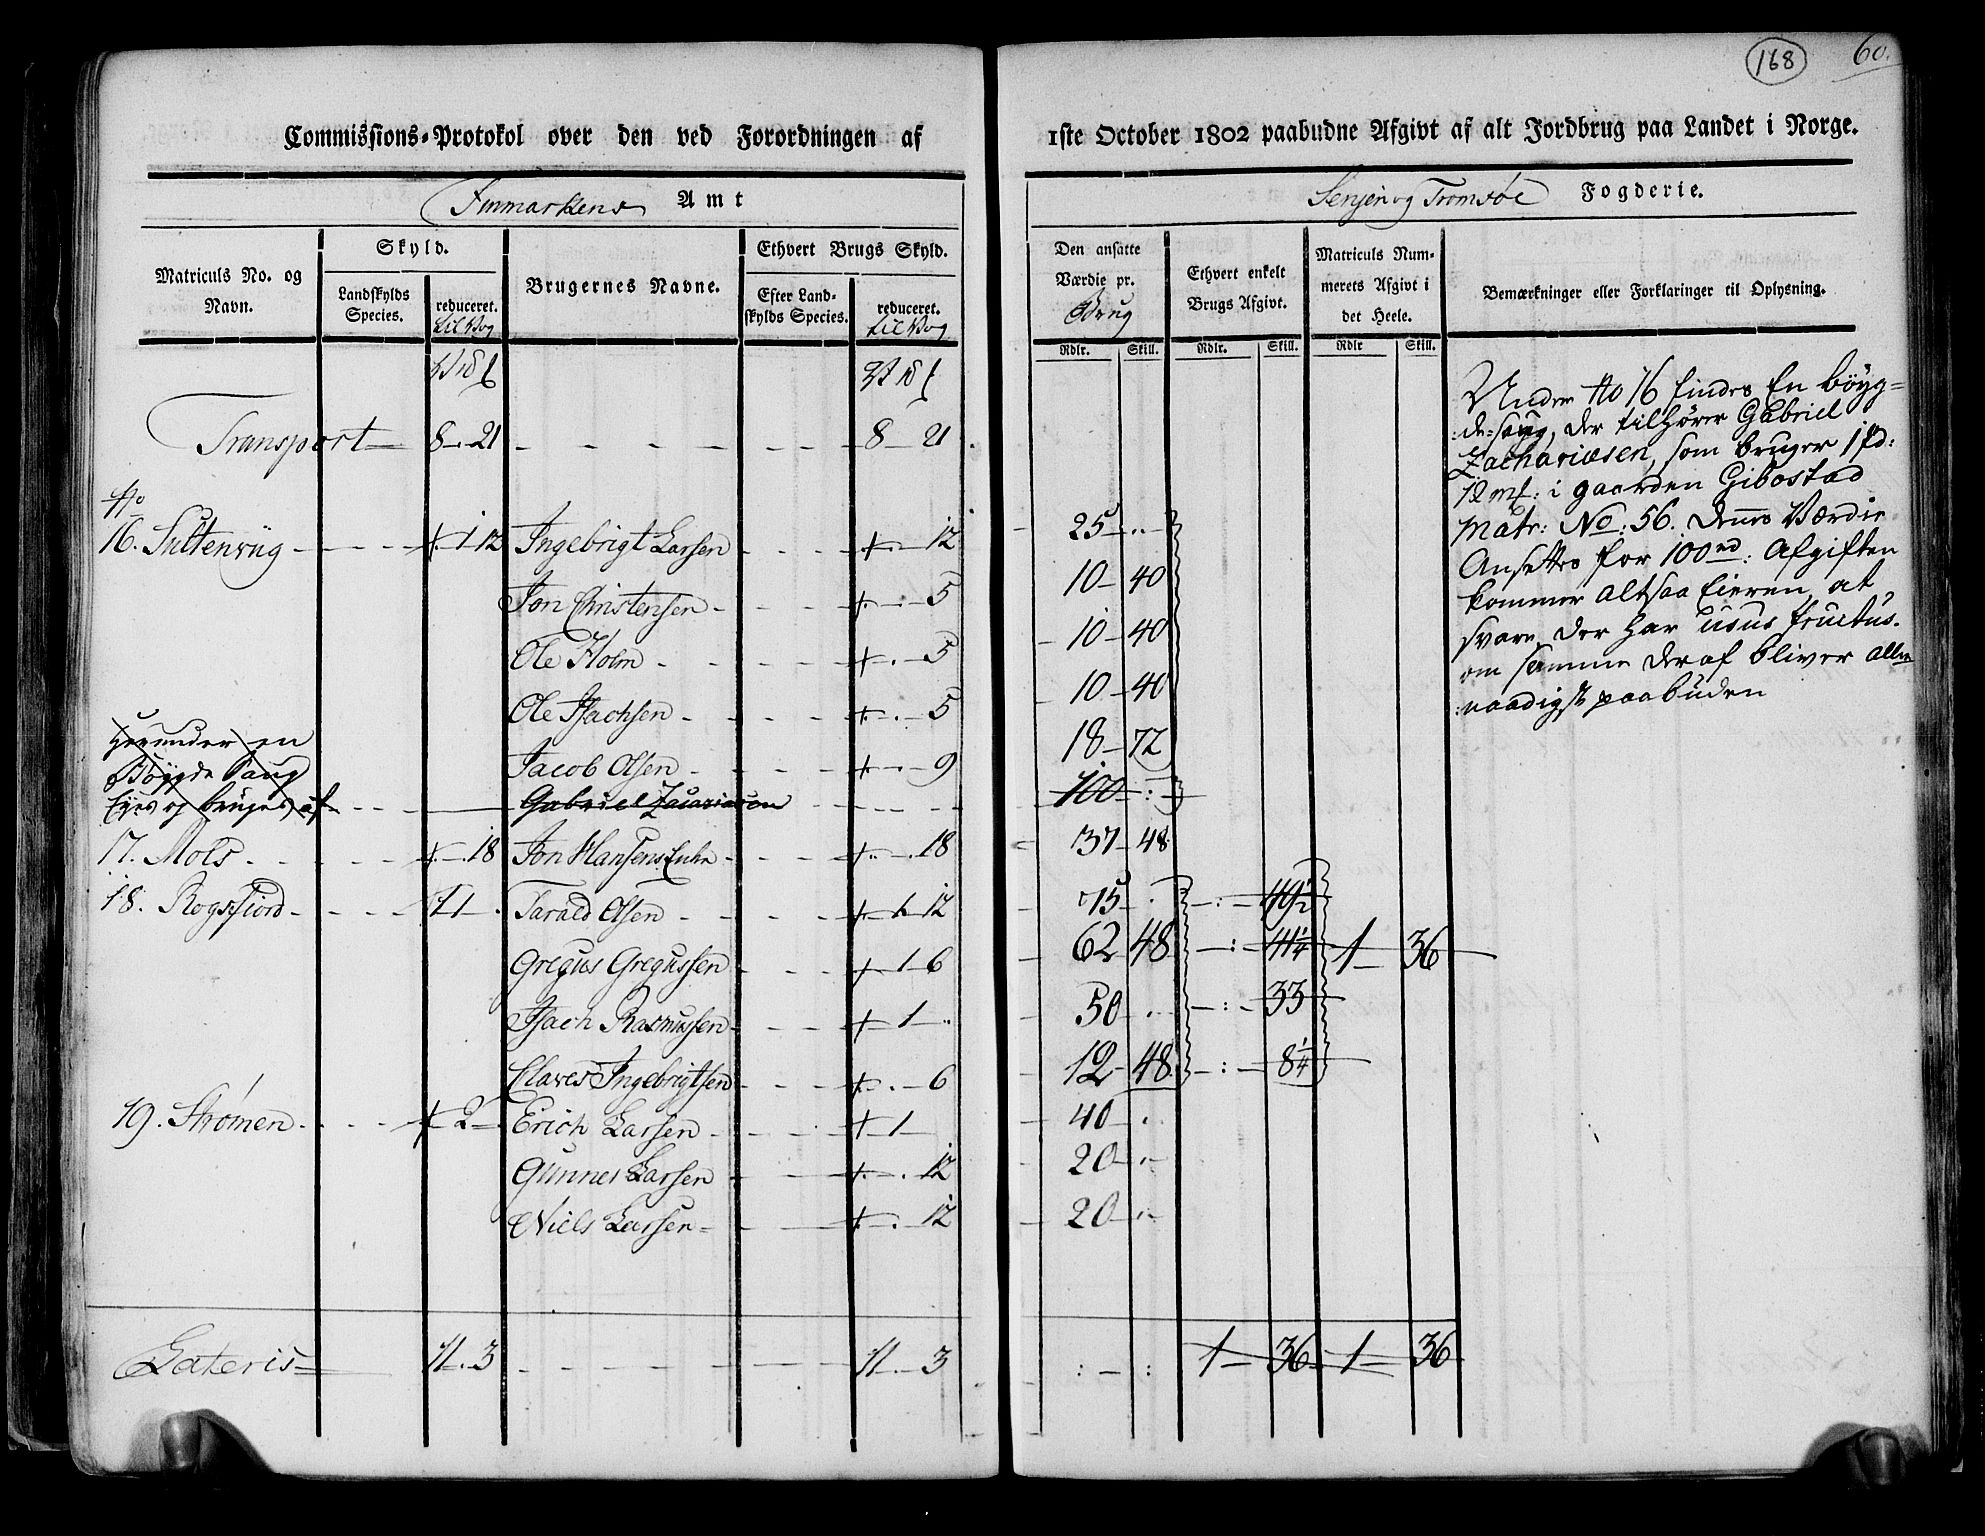 168
60.
Commissions-Protokol over den ved Forordningen af 1ste October 1802 paabudne Afgivt af alt Jordbrug paa Landet i Norge.
Finmarkens Amt
Senjen og Tromsøe Fogderie.
Matriculs No. og Navn.
Skyld.
Landskylds Species.
reduceret. til Vog
Brugernes Navne.
Ethvert Brugs Skyld.
Efter Landskylds Species.
reduceret. til Vog
Den ansatte Værdie pr. Brug
Ethvert enkelt Brugs Afgivt.
Matriculs Nummerets Afgivt i det Heele.
Bemærkninger eller Forklaringer til Oplysning.
Rdlr. Skill. Rdlr. Skill. Rdlr Skill.
Transport 8 - 21 - - - - - 8 - 21
No
16. Sultenvig - - - 1 12 Ingebrigt Larsen - - - 12 25 - ..
Jon Christensen - - - 5 10 - 40
Ole Holm - - - 5 10 - 40
Ole Isachsen - - - 5 10 - 40
Jacob Olsen - - - 9 18 - 72
Herunder en
Bøygde Saug
Eyes og bruges af - - Gabriel Zacariasen - - - 100 - :
17. Mols - - - 18 Jon Hansens Enke - - - 18 37 - 48
18. Rogsfiord - - - 1 1 - Tarald Olsen - - - 1 - 12 75 - . - : - 49½
Gregus Gregussen - - 1 - 6 62 - 48 - : - 41¼ 1 - 36
Isach Rasmussen - - 1 - .. 50 - .. - : - 33
Claves Ingebrigtsen - - 6 12 - 48 - : - 8¼
19. Strømen - - - 2 - Erich Larsen - - - 1 - 40 - .
Gunner Larsen - - - 12 20 - ..
Niels Larsen - - - 12 20 - ..
Lateris 11 . 3 - - - - - 11 . 3 : - : 1 - 36 1 - 36
Under No 16 findes En bøyg=
:de=saug, der tilhører Gabriel
Zachariæsen, som bruger 1 pd:
12 mk: i gaarden Gibostad
Matr: No: 56. dennes Værdie
Ansettes for 100 rd: Afgiften
kommer altsaa Eieren at
svare, der har usus fructus.
om samme deraf bliver aller
:naadigst paabuden